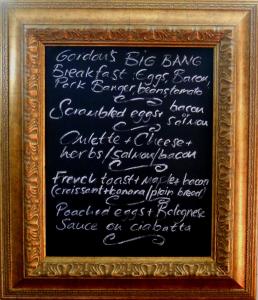 Gordon's BIG BANG
Breakfast: Eggs, Bacon,
Pork Banger, beans, tomato
Scrambled eggs + bacon
or
salmon
Omlette + Cheese +
herbs/salmon/bacon
French toast + Maple + bacon
(croissant + banana/plain bread)
Poached eggs + Bolognese
Sauce on ciabatta